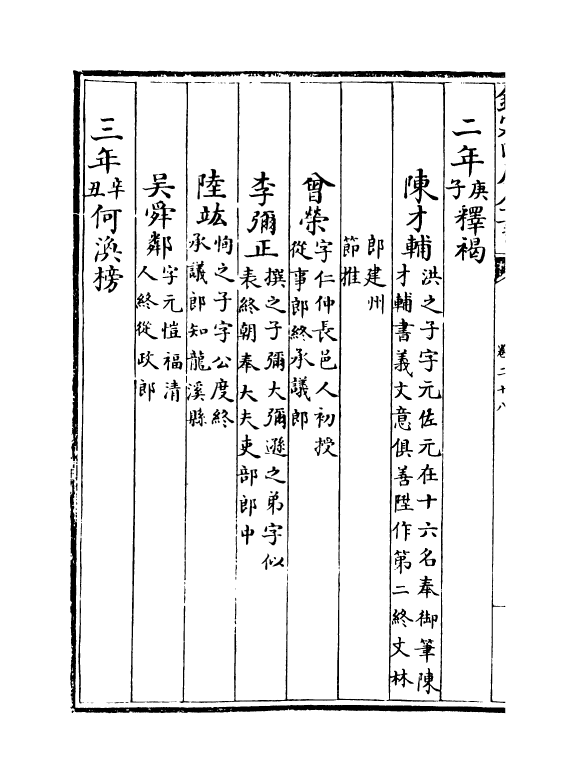 卷二十八
二年庚子釋褐
陳才輔洪之子字元佐元在十六名奉御筆陳
才輔書義文意俱善陞作第二終文林
郎建州
節推
曾榮字仁仲長邑人初授
從事郎終承議郎
李彌正撰之子彌大彌遜之弟字似
表終朝奉大夫吏部郎中
陸竑恂之子字公度終
承議郎知龍溪縣
吳舜鄰字元愷福清
人終從政郎
三年辛丑何渙榜